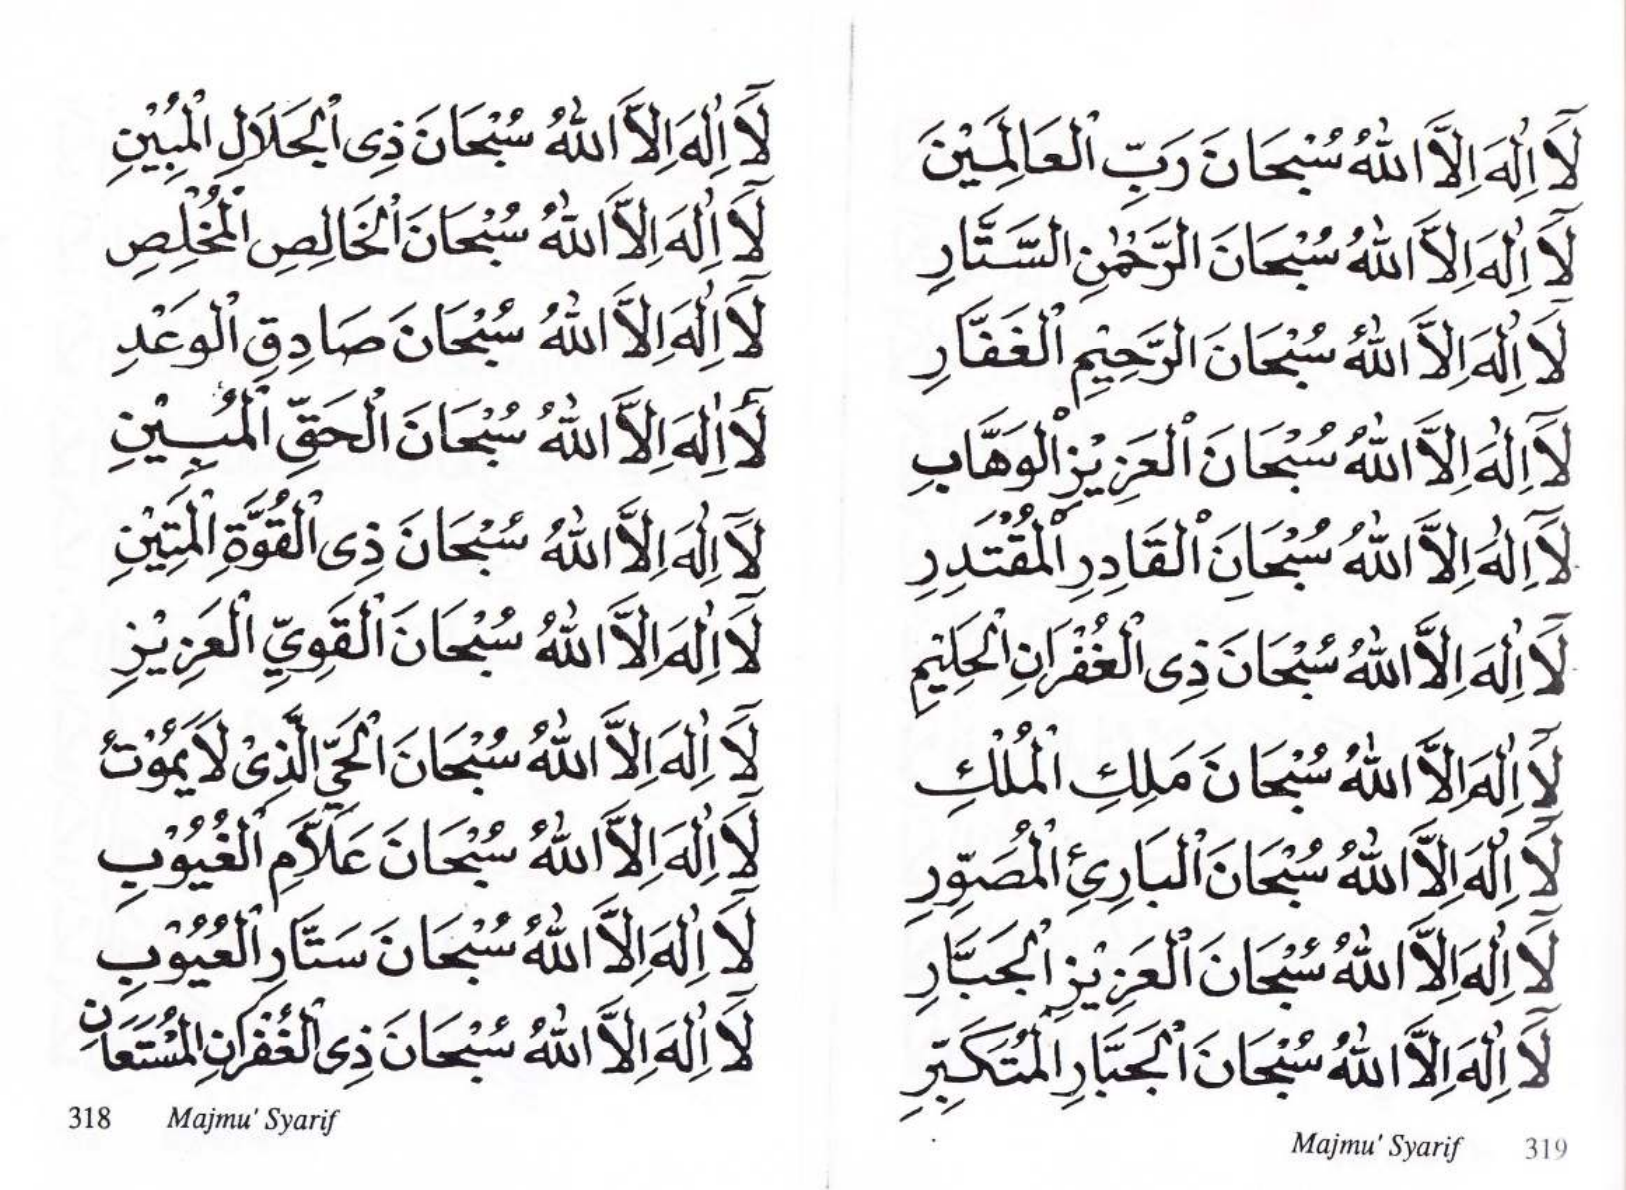 لَآ اِلٰهَ اِلَّا اللّٰهُ سُبْحَانَ ذِى الْجَلَالِ الْمُبِيْنِ
لَآ اِلٰهَ اِلَّا اللّٰهُ سُبْحَانَ الْخَالِصِ الْمُخْلِصِ
لَآ اِلٰهَ اِلَّا اللّٰهُ سُبْحَانَ صَادِقِ الْوَعْدِ
لَآ اِلٰهَ اِلَّا اللّٰهُ سُبْحَانَ الْحَقِّ الْمُبِيْنِ
لَآ اِلٰهَ اِلَّا اللّٰهُ سُبْحَانَ ذِى الْقُوَّةِ الْمَتِيْنِ
لَآ اِلٰهَ اِلَّا اللّٰهُ سُبْحَانَ الْقَوِيِّ الْعَزِيْزِ
لَآ اِلٰهَ اِلَّا اللّٰهُ سُبْحَانَ الْحَيِّ الَّذِيْ لَا يَمُوْتُ
لَآ اِلٰهَ اِلَّا اللّٰهُ سُبْحَانَ عَلَّامِ الْغُيُوْبِ
لَآ اِلٰهَ اِلَّا اللّٰهُ سُبْحَانَ سَتَّارِ الْعُيُوْبِ
لَآ اِلٰهَ اِلَّا اللّٰهُ سُبْحَانَ ذِى الْغُفْرَانِ الْمُسْتَعَانِ
318 Majmu' Syarif
لَآ اِلٰهَ اِلَّا اللّٰهُ سُبْحَانَ رَبِّ الْعَالَمِيْنَ
لَآ اِلٰهَ اِلَّا اللّٰهُ سُبْحَانَ الرَّحْمٰنِ السَّتَّارِ
لَآ اِلٰهَ اِلَّا اللّٰهُ سُبْحَانَ الرَّحِيْمِ الْغَفَّارِ
لَآ اِلٰهَ اِلَّا اللّٰهُ سُبْحَانَ الْعَزِيْزِ الْوَهَّابِ
لَآ اِلٰهَ اِلَّا اللّٰهُ سُبْحَانَ الْقَادِرِ الْمُقْتَدِرِ
لَآ اِلٰهَ اِلَّا اللّٰهُ سُبْحَانَ ذِى الْغُفْرَانِ الْحَلِيْمِ
لَآ اِلٰهَ اِلَّا اللّٰهُ سُبْحَانَ مَلِكِ الْمُلْكِ
لَآ اِلٰهَ اِلَّا اللّٰهُ سُبْحَانَ الْبَارِئِ الْمُصَوِّرِ
لَآ اِلٰهَ اِلَّا اللّٰهُ سُبْحَانَ الْعَزِيْزِ الْجَبَّارِ
لَآ اِلٰهَ اِلَّا اللّٰهُ سُبْحَانَ الْجَبَّارِ الْمُتَكَبِّرِ
Majmu' Syarif 319